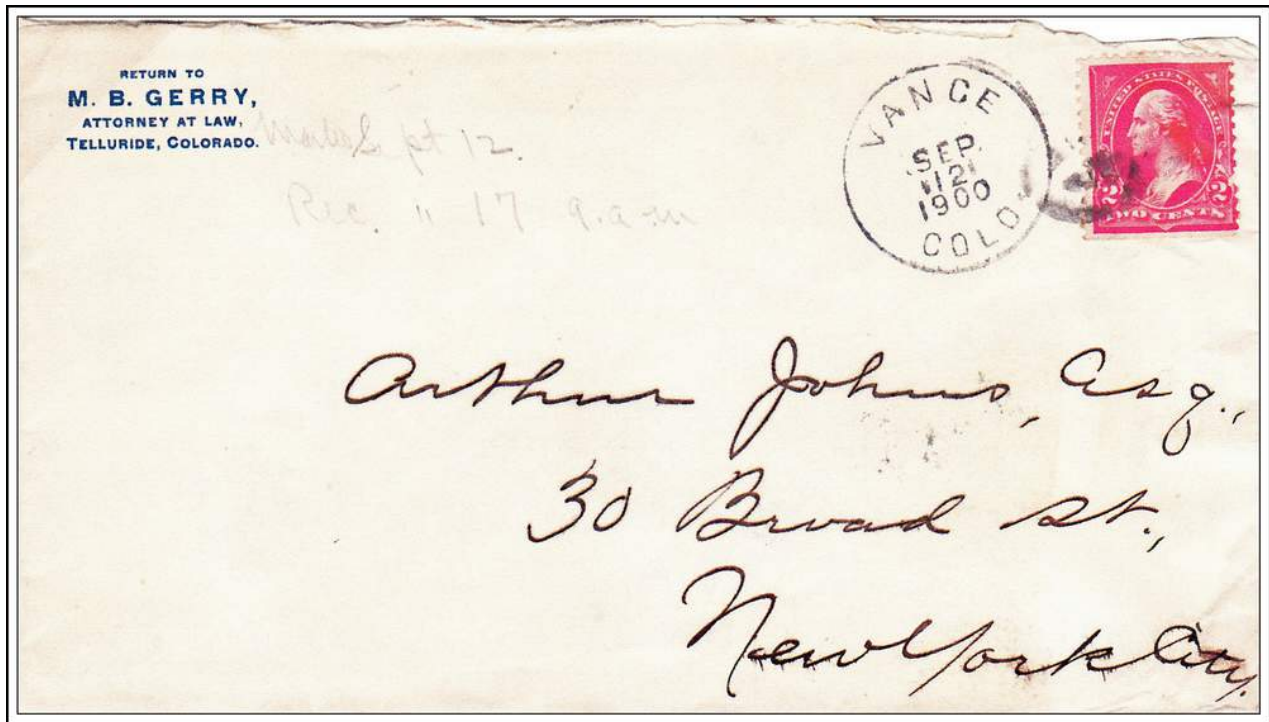 RETURN TO
M. B. GERRY,
ATTORNEY AT LAW,
TELLURIDE, COLORADO.
Sept 12.
Rec. " 17 9.a.m
VANCE
SEP
12
1900
COLO.
UNITED STATES POSTAGE
2 2
TWO CENTS
Arthur Johns, Esq.,
30 Broad St.,
New York City.